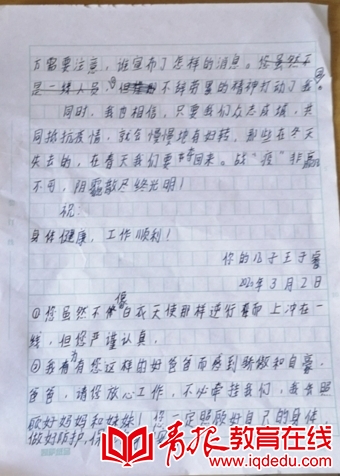 方需要注意，谁宣布了怎样的消息。您虽然不
是一线人员，但 不辞劳累的精神打动了我。
同时，我也相信，只要我们众志成城，共
同抵抗疫情，就会慢慢地有好转，那些在冬天
失去的，在春天我们要夺回来。战“疫”非赢
不可，阴霾散尽终光明！
祝：
身体健康，工作顺利！
你的儿子王子
2020年3月2日
①您虽然不像白衣天使那样逆行而上冲在一
线，但您严谨认真，
②我为有您这样的好爸爸而感到骄傲和自豪，
爸爸，请您放心工作，不必牵挂我们，我会照
顾好妈妈和妹妹！您一定照顾好自己的身体
做好防护，保
青报教育在线
www.iqdedu.com